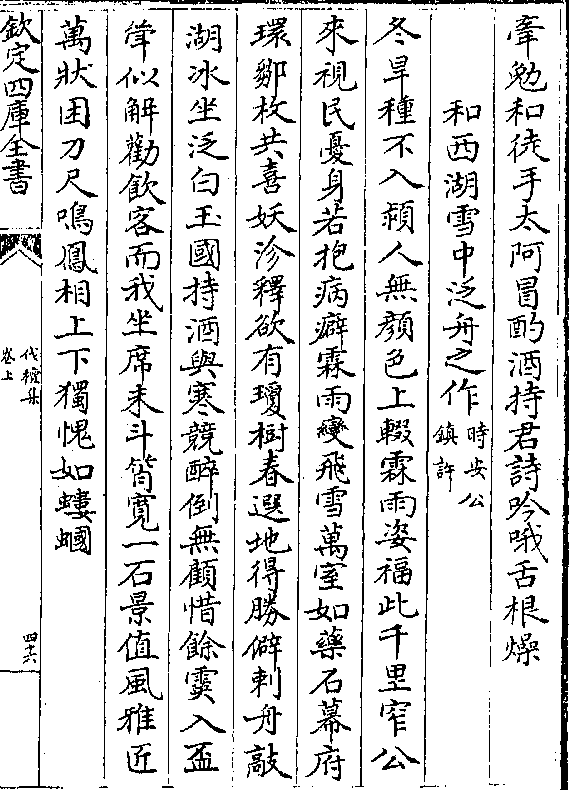 牽勉和徒手太阿冒酌酒持君詩吟哦舌根燥
和西湖雪中泛舟之作時安公鎮許
冬旱種不入頼人無顔色上輟霖雨姿福此千里窄公
來視民憂身若抱病癖霖雨變飛雪萬室如藥石幕府
環鄒枚共喜妖沴釋欲有瓊樹春選地得勝僻刺舟敲
湖冰坐泛白玉國持酒與寒競醉倒無顧惜餘霙入盃
聳似解勸飲客而我坐席末斗筲寛一石景值風雅近
萬狀困刀尺鳴鳳相上下獨愧如螻蟈
欽定四庫全書
伐檀集
卷上
四十六